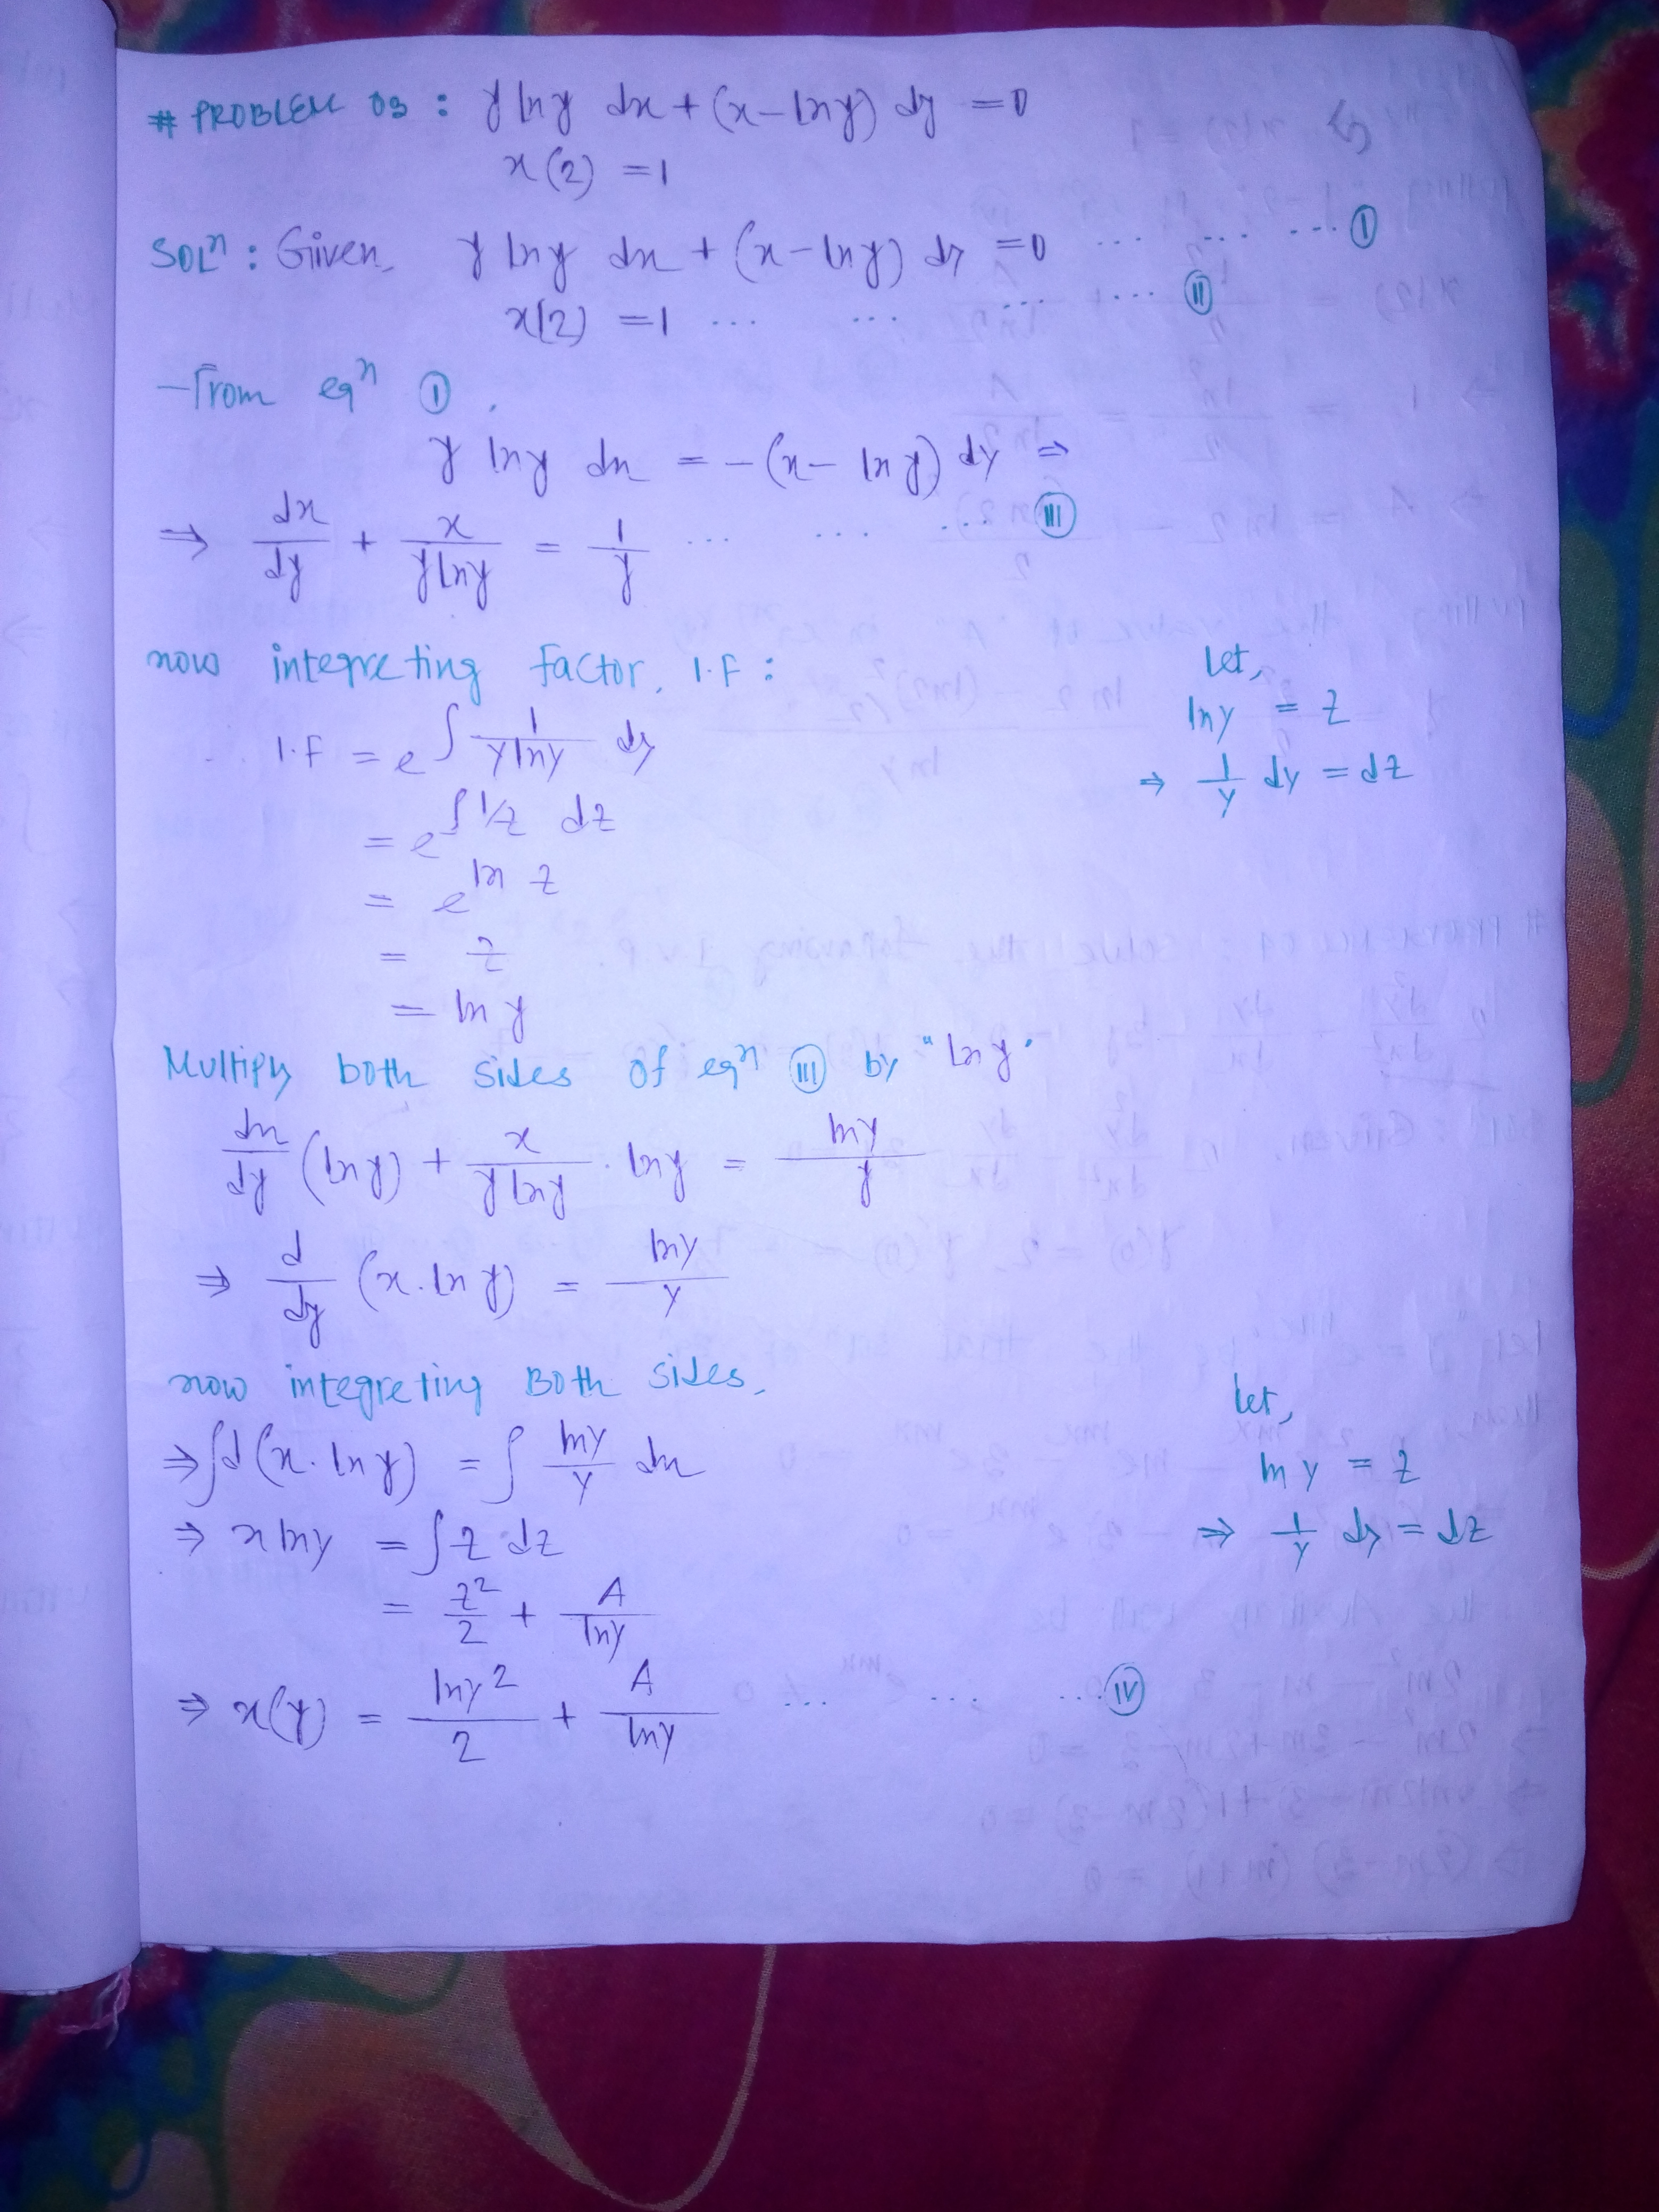 # PROBLEM 03 : y lny dx + (x - lny) dy = 0
x(2) = 1
SOLⁿ : Given, y lny dx + (x - lny) dy = 0 ... ... ... Ⓘ
x(2) = 1 ... ... ... ... Ⓘⓘ
From eqⁿ Ⓘ,
y lny dx = -(x - lny) dy ⇒
⇒ dx/dy + x/(y lny) = 1/y ... ... ... (III)
now integreting factor, I.F :
Let,
I.F = e^∫ 1/(y lny) dy
lny = z
⇒ 1/y dy = dz
= e^∫ 1/z dz
= e^ln z
= z
= ln y
Multiply both sides of eqⁿ (III) by "ln y"
dx/dy (lny) + x/(y lny) . lny = lny/y
⇒ d/dy (x. ln y) = lny/y
now integreting Both sides,
let,
⇒ ∫d (x. lny) = ∫ lny/y dx
ln y = z
⇒ x lny = ∫ z dz
⇒ 1/y dy = dz
= z²/2 + A/lny
⇒ x(y) = lny²/2 + A/lny ... ... ... (IV)